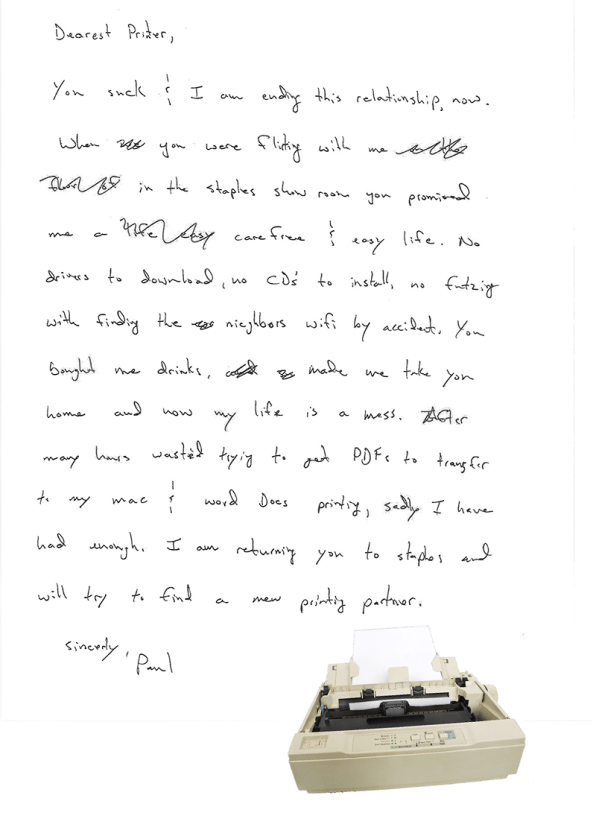 Dearest Printer,
You suck & I am ending this relationship, now.
When you were flirting with me
in the staples show room you promised
me a carefree & easy life. No
drivers to download, no CDs to install, no futzing
with finding the nieghbors wifi by accident. You
bought me drinks, made me take you
home and now my life is a mess. After
many hours wasted trying to get PDFs to transfer
to my mac & word Docs printing, sadly I have
had enough. I am returning you to staples and
will try to find a new printing partner.
sincerly,
Paul